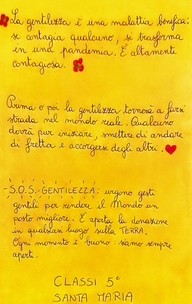 La gentilezza è una malattia benefica:
se contagia qualcuno, si trasforma
in una pandemia. È altamente
contagiosa.
Prima o poi la gentilezza tornerà a farsi
strada nel mondo reale. Qualcuno
dovrà pur iniziare, smettere di andare
di fretta e accorgersi degli altri.
S.O.S. GENTILEZZA: urgono gesti
gentili per rendere il Mondo un
posto migliore. È aperta la donazione
in qualsiasi luogo sulla TERRA.
Ogni momento è buono: siamo sempre
aperti.
CLASSI 5°
SANTA MARIA